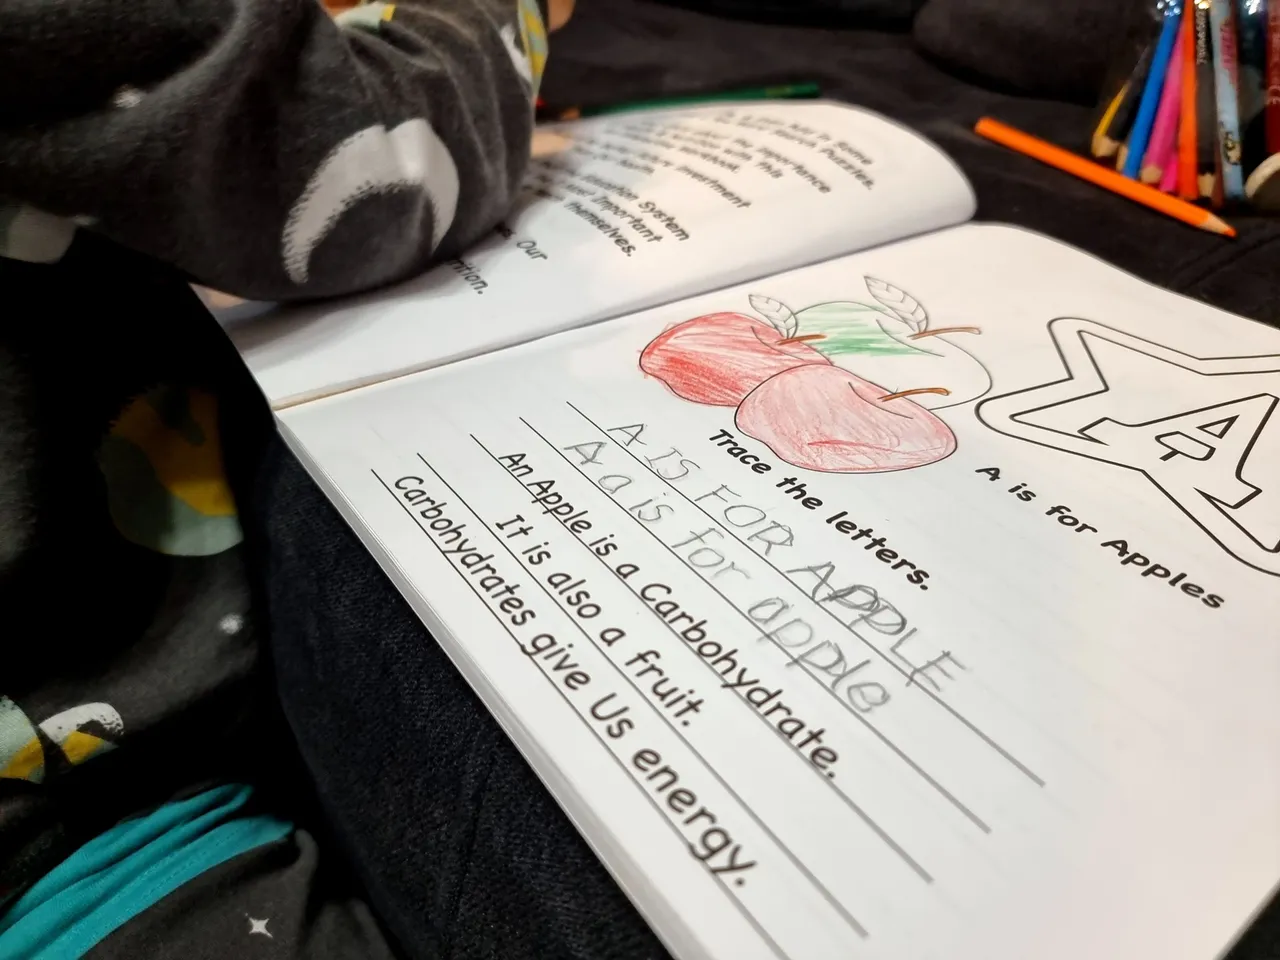 to some
Search Puzzles.
the importance
with this
workbook.
investment
System
Important
themselves.
Our
A
A is for Apples
Trace the letters.
A IS FOR APPLE
A a is for apple
An Apple is a Carbohydrate.
It is also a fruit.
Carbohydrates give Us energy.